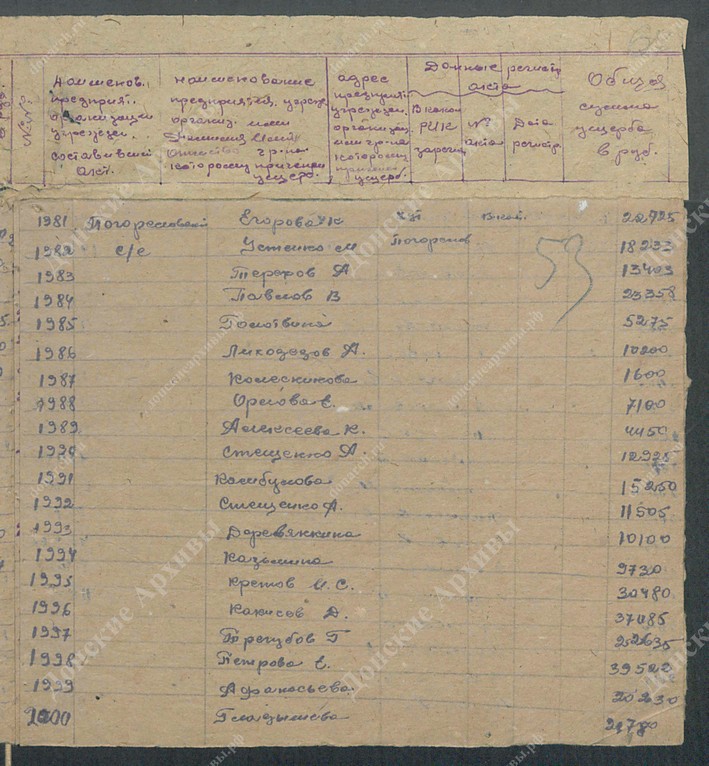 №№ Наименов. предприят. организации учрежден. составивший акт. наименование предприятия, учрежд. организ. или гр-на которому причинен ущерб. адрес предприят. учрежден. организац. или гр-на которому ущерб. Данные регистр. акта В каком РИК зарегис № акта Дата регистр. Общая сумма ущерба в руб.
1981 Погореловский Егорова К 22725
1982 с/с Устенко М Погорелов 18233
1983 Терехов А 13403
1984 Павлов В 23358
1985 5275
1986 А. 10200
1987 Колесникова 1600
1988 Орлова Е. 7100
1989 Алексеева К. 4450
1990 Стеценко А. 12925
1991 15250
1992 Стеценко А. 11505
1993 Деревянкина 10100
1994 Казьмина 9730
1995 Кретов И. С. 30480
1996 Д. 37485
1997 Трегубов Г 22635
1998 Петрова Е. 39522
1999 Афанасьева 20230
2000 Гладышева
53